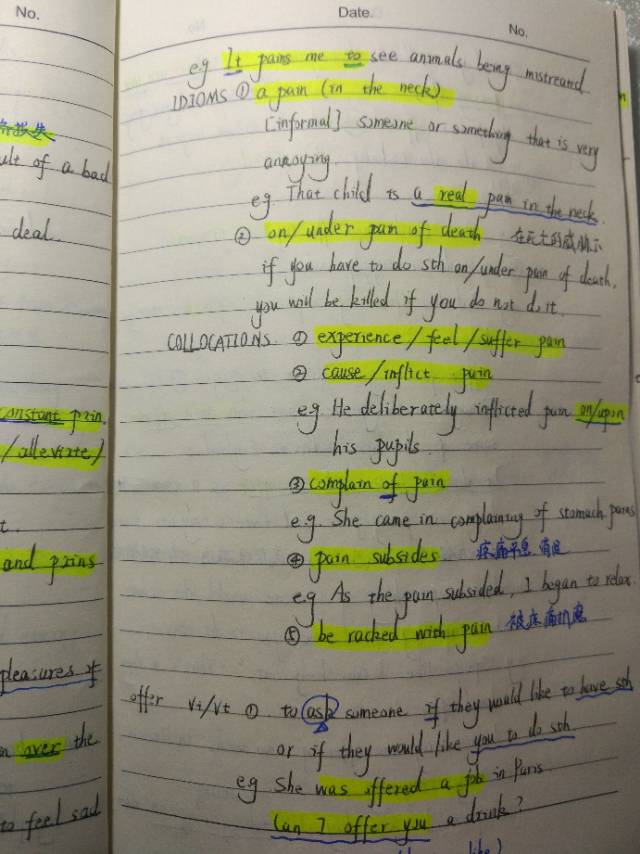 No.
Date.
No.
eg It pains me to see animals being mistreated
IDIOMS ① a pain (in the neck)
[informal] someone or something that is very
annoying.
eg. That child is a real pain in the neck.
② on/under pain of death
if you have to do sth on/under pain of death,
you will be killed if you do not do it.
COLLOCATIONS ① experience/feel/suffer pain
② cause/inflict pain
eg He deliberately inflicted pain on/upon
his pupils.
③ complain of pain
e.g. She came in complaining of stomach pains
④ pain subsides 疼痛平息
e.g As the pain subsided, I began to relax.
⑤ be racked with pain 被疼痛折磨
offer vi/vt ① to ask someone if they would like to have sth
or if they would like you to do sth
eg She was offered a job in Paris
Can I offer you a drink?
like)
ult of a bad
deal.
constant pain.
/alleviate)
t.
and pains
pleasures of
over the
to feel sad